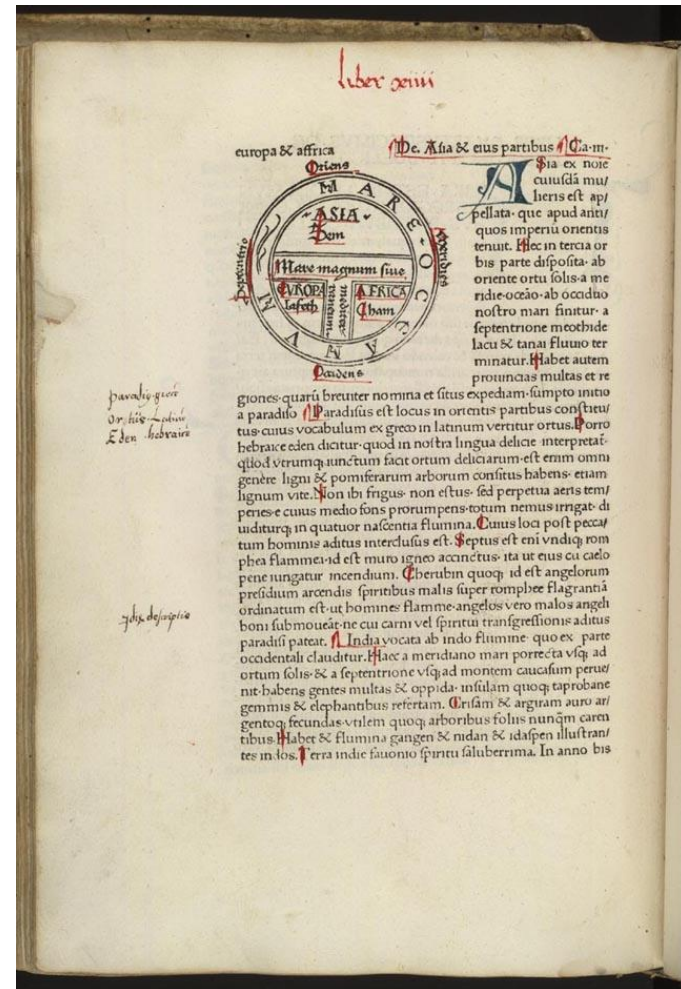 liber xiiii
europa & affrica
De. Asia & eius partibus Ca·m·
Oriens
MARE OCEANVM
ASIA
Sem
Mare magnum siue
EVROPA
Iafeth
mediter
raneum
AFRICA
Cham
Septentrio
Meridies
Occidens
ASia ex noīe
cuiusdā mu/
lieris est ap/
pellata· que apud anti/
quos imperiū orientis
tenuit. Hec in tercia or
bis parte disposita· ab
oriente ortu solis· a me
ridie·oceāo·ab occiduo
nostro mari finitur· a
septentrione meothide
lacu & tanai fluuio ter
minatur. Habet autem
prouincias multas et re
giones·quarū breuiter nomina et situs expediam·sumpto initio
a paradiso Paradisus est locus in orientis partibus constitu/
tus·cuius vocabulum ex greco in latinum vertitur ortus. Porro
hebraice eden dicitur·quod in nostra lingua delicie interpretat̄·
quod vtrumq; iunctum facit ortum deliciarum·est enim omni
genere ligni & pomiferarum arborum consitus habens· etiam
lignum vite. Non ibi frigus· non estus· sed perpetua aeris tem/
peries·e cuius medio fons prorumpens·totum nemus irrigat· di
uiditurq; in quatuor nascentia flumina. Cuius loci post pecca/
tum hominis aditus interclusus est. Septus est eni vndiq; rom
phea flammea·id est muro igneo accinctus· ita ut eius cū caelo
pene iungatur incendium. Cherubin quoq; id est angelorum
presidium arcendis spiritibus malis super rompheę flagrantiā
ordinatum est·ut homines flamme·angelos vero malos angeli
boni submoueāt·ne cui carni vel spiritui transgressionis aditus
paradisi pateat. India vocata ab indo flumine· quo ex parte
occidentali clauditur. Haec a meridiano mari porrecta vsq; ad
ortum solis· & a septentrione vsq; ad montem caucasum perue/
nit·habens gentes multas & oppida· insulam quoq; taprobane
gemmis & elephantibus refertam. Crisām & argiram auro ar/
gentoq; fecundas·vtilem quoq; arboribus foliis nunq̄m caren
tibus. Habet & flumina gangen & nidan & idaspen illustran/
tes indos. Terra indie fauonio spiritu saluberrima. In anno bis
paradis· grece
Ortus Latine
Eden hebraice
Indie descriptio